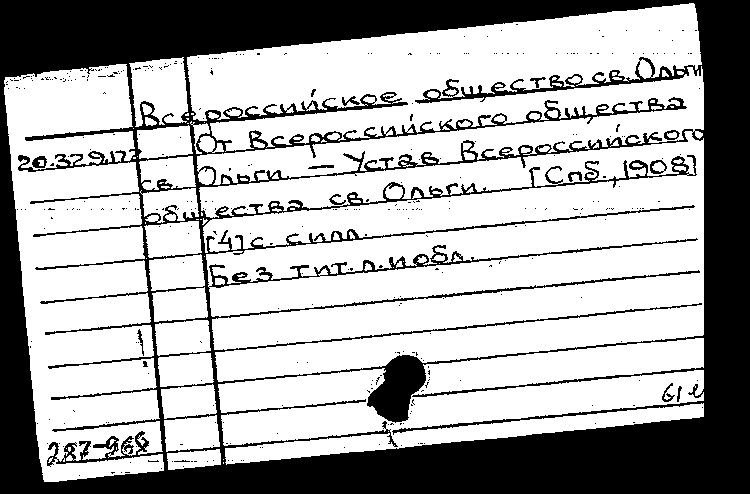 Всероссийское общество св. Ольги
От Всероссийского общества
20.329.177
св. Ольги. — Устав Всероссийского
общества св. Ольги. [Спб., 1908]
[4] с. с илл.
Без тит. л. и обл.
61
287-968